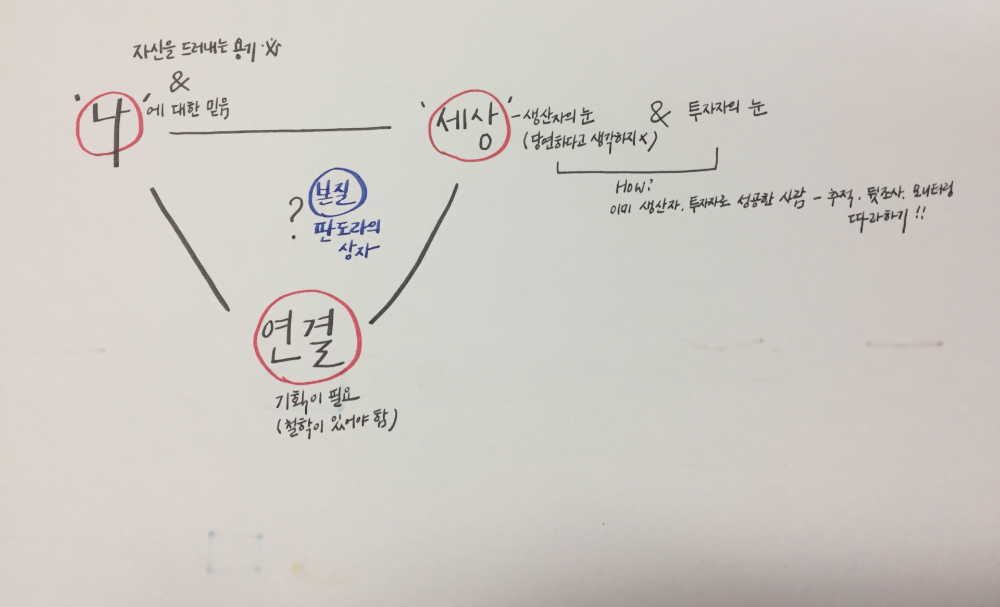 자신을 드러내는 용기
&
'나'에 대한 믿음
'세상' - 생산자의 눈 & 투자자의 눈
(당연하다고 생각하지 X)
How?
이미 생산자, 투자자로 성공한 사람 - 추적, 뒷조사, 모니터링
따라하기!!
? 본질
판도라의
상자
연결
기획이 필요
(철학이 있어야 함)